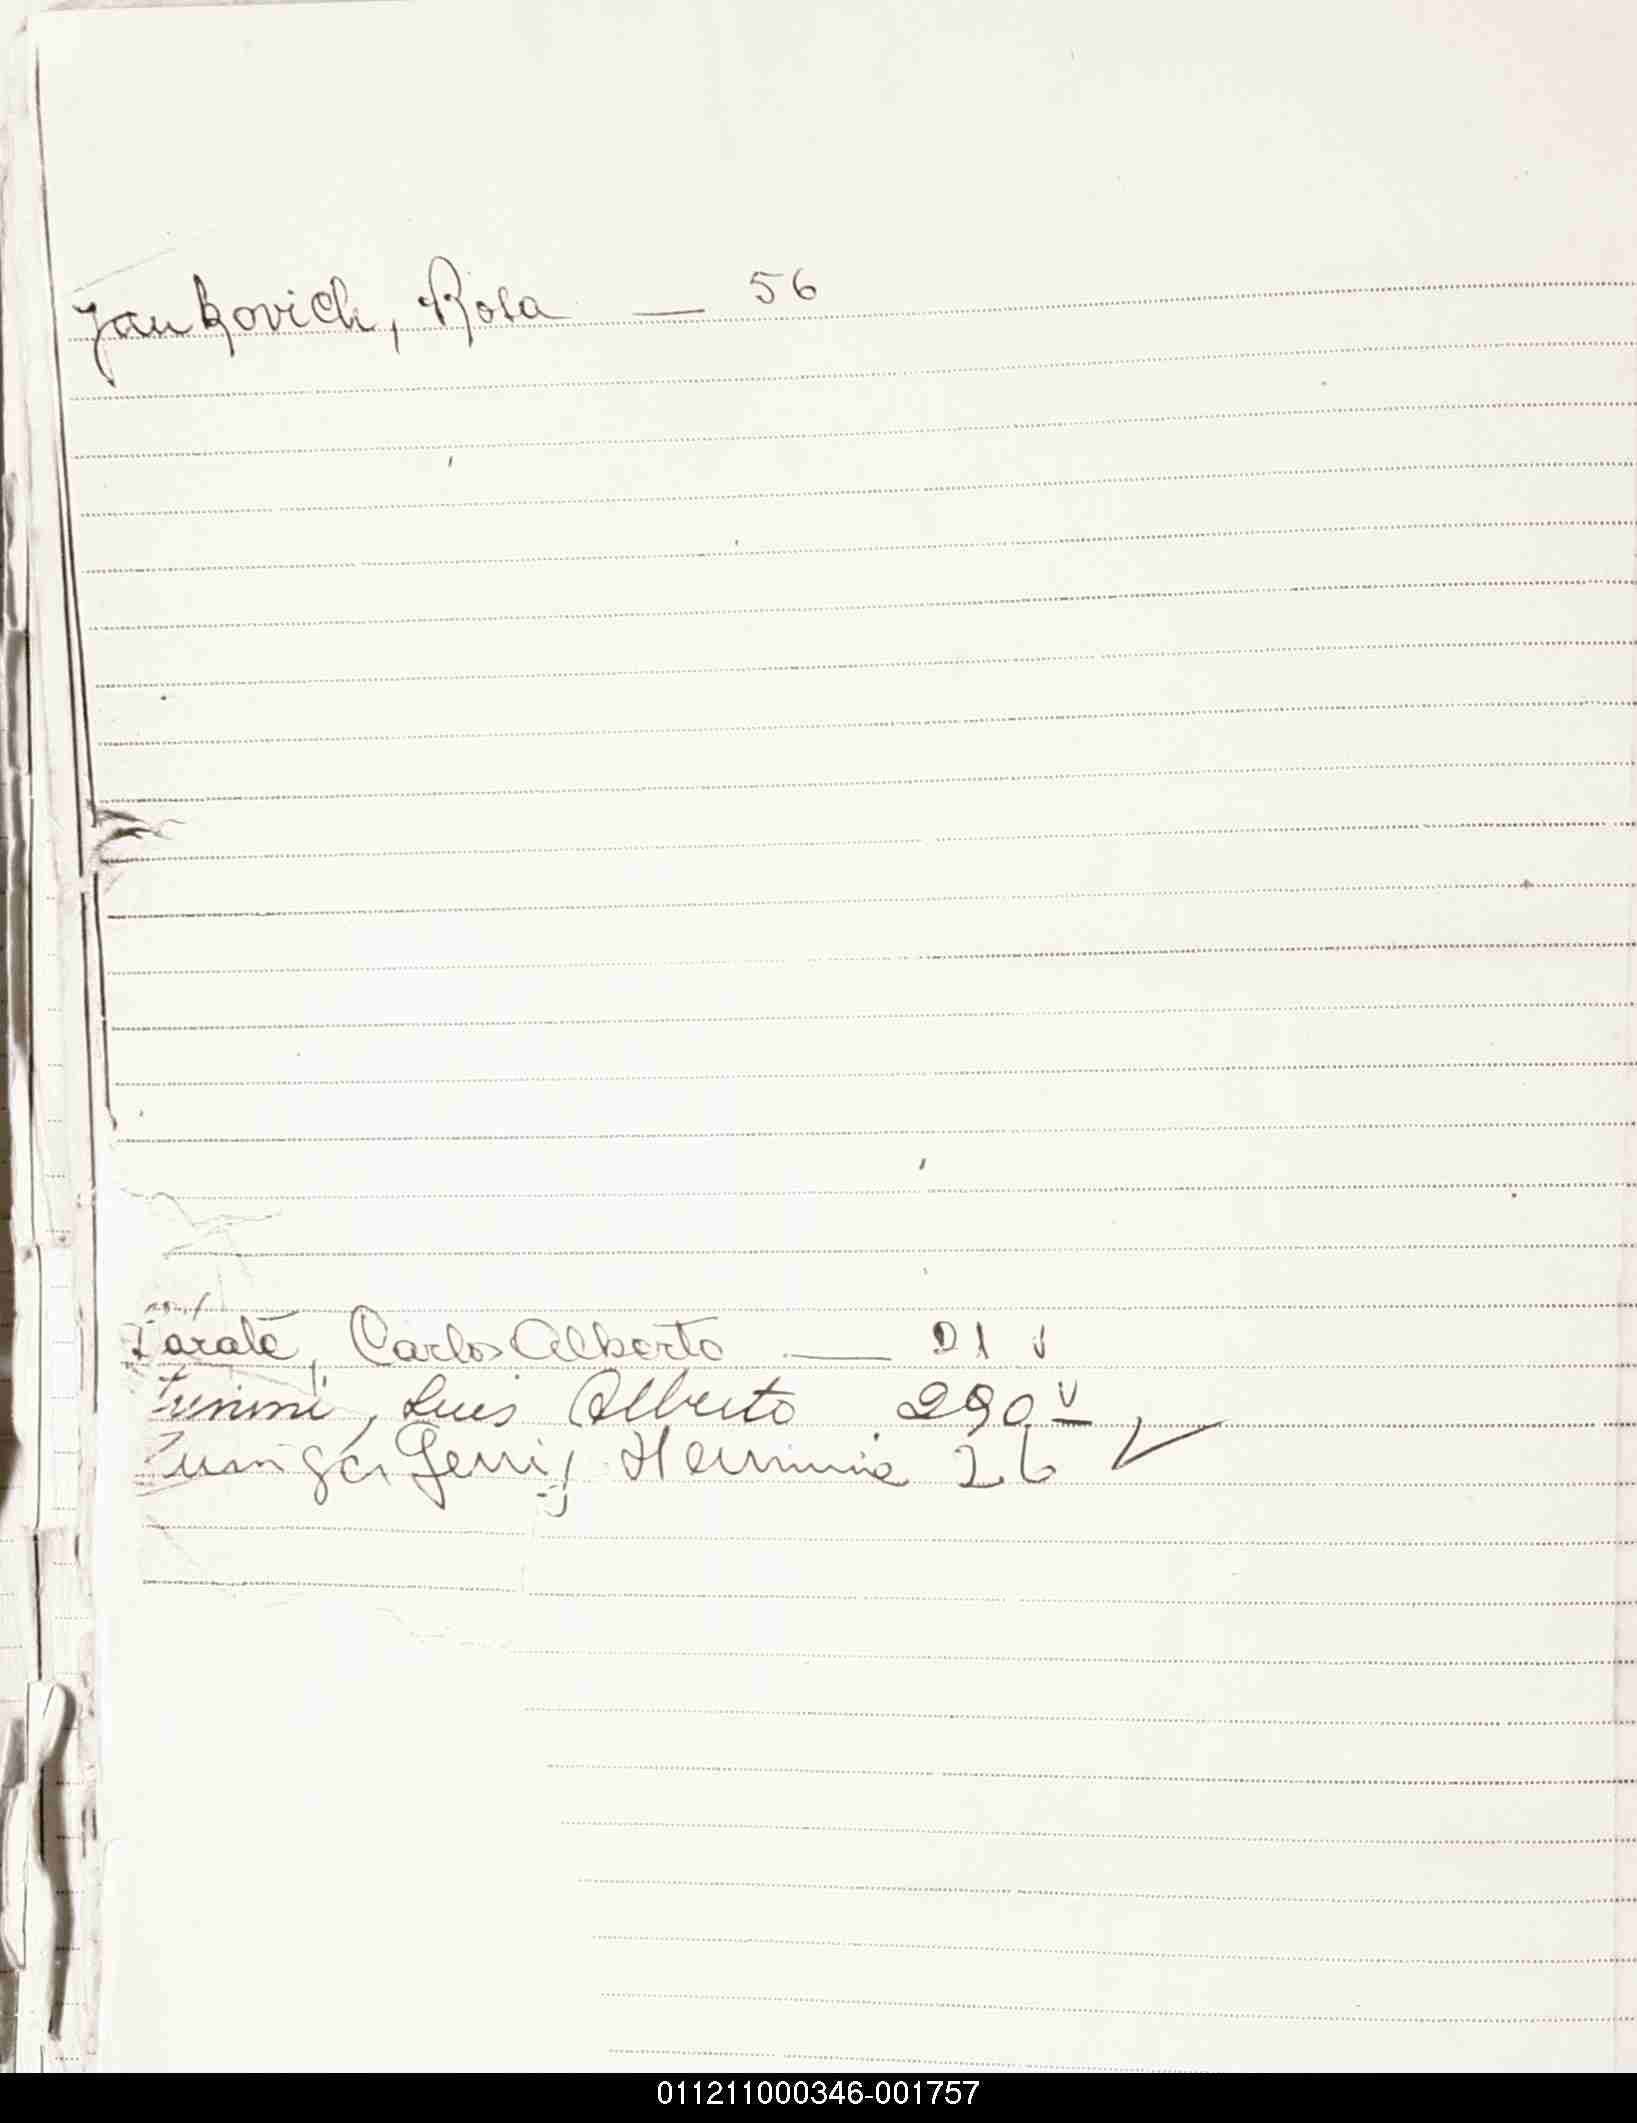 Yankovich, Rosa — 56
Zarate, Carlos Alberto — 21 v
Luis Alberto 290 v
Herminia 26
011211000346-001757